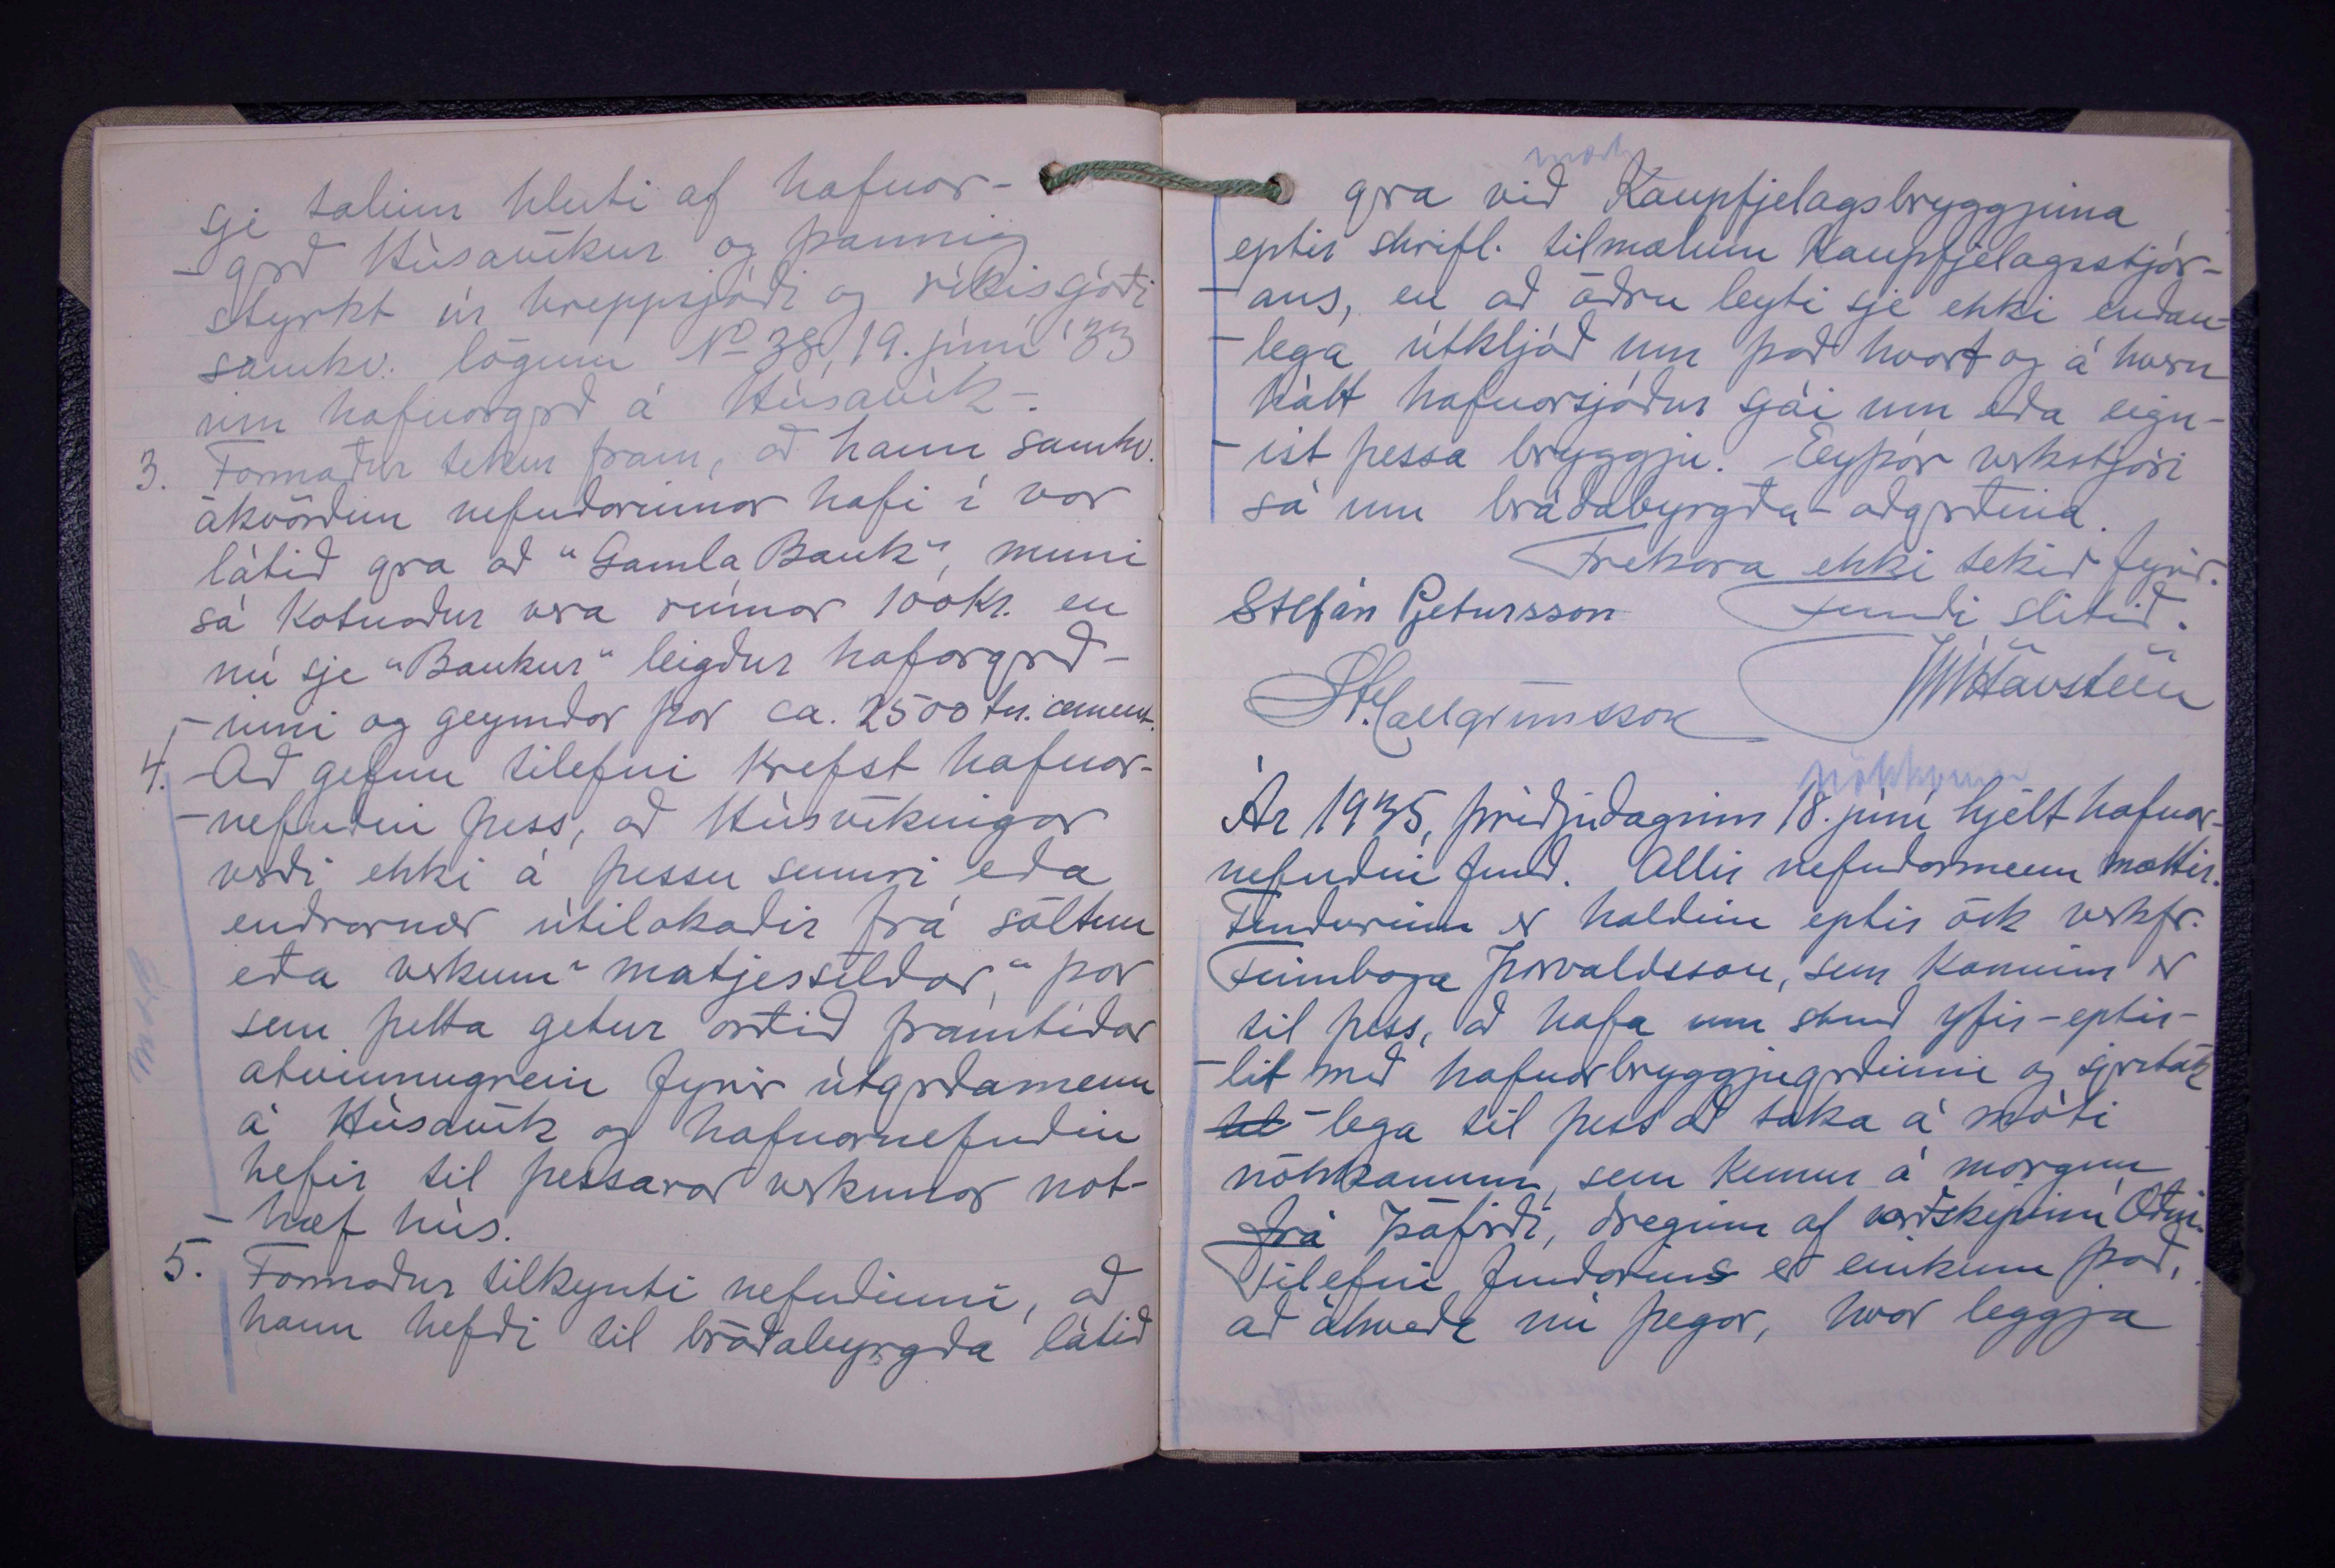 sje talinn hluti af hafnar-
-grð Húsavíkur og þannig
styrkt úr hreppsjóði og ríkissjóði
samkv. lögum No 38, 19. júní '33
um hafnargrð á Húsavík-.
3. Formaður tekur fram, að hann samkv.
ákvörðun nefndarinnar hafi í vor
látið gra að "Gamla Bauk", muni
sá kotnaður vera rúmar 100 kr. en
nú sje "Baukur" leigður haforgrð-
-inni og geymdar þar ca. 2500 tn. cement.
4. -Að gefnu tilefni krefst hafnar-
-nefndin þess, að Húsvíkingar
verði ekki á þessu sumri eða
endrarnær útilokaðir frá söltun
eða verkun "matjessíldar," þar
sem þetta getur orðið framtíðar
atvinnugrein fyrir útgrðamenn
á Húsavík og hafnarnefndin
hefir til þessarar verkunar not-
-hæf hús.
5. Formaður tilkynti nefndinni, að
hann hefði til bráðabyrgða látið
gra við Kaupfjelagsbryggjuna
eptir skrifl. tilmælum Kaupfjelagsstjór-
-ans, en að öðru leyti sje ekki endan-
-lega útkljáð um það hvort og á hvern
hátt hafnarsjóður sjái um eða eign-
-ist þessa bryggju. Eyþór verkstjóri
sá um bráðabyrgða-aðgrðina.
Frekara ekki tekið fyrir.
Stefán Pjetursson Fundi slitið.
St. Hallgrímsson JHHavsteen
nökkvinn
Ár 1935, þriðjudaginn 18. júní hjelt hafnar-
nefndin fund. Allir nefndarmenn mættir.
Fundurinn er haldinn eptir ósk verkfr.
Finnboga Þorvaldsson, sem kominn er
til þess, að hafa um stund yfir-eptir-
-lit með hafnarbryggjugrðinni og sjrstak
-lega til þess að taka á móti
nökkvanum, sem kemur á morgun
frá Ísafirði, dreginn af varðskipinu Oðni.
Tilefni fundarins er einkum það,
að ákveða nú þegar, hvar leggja